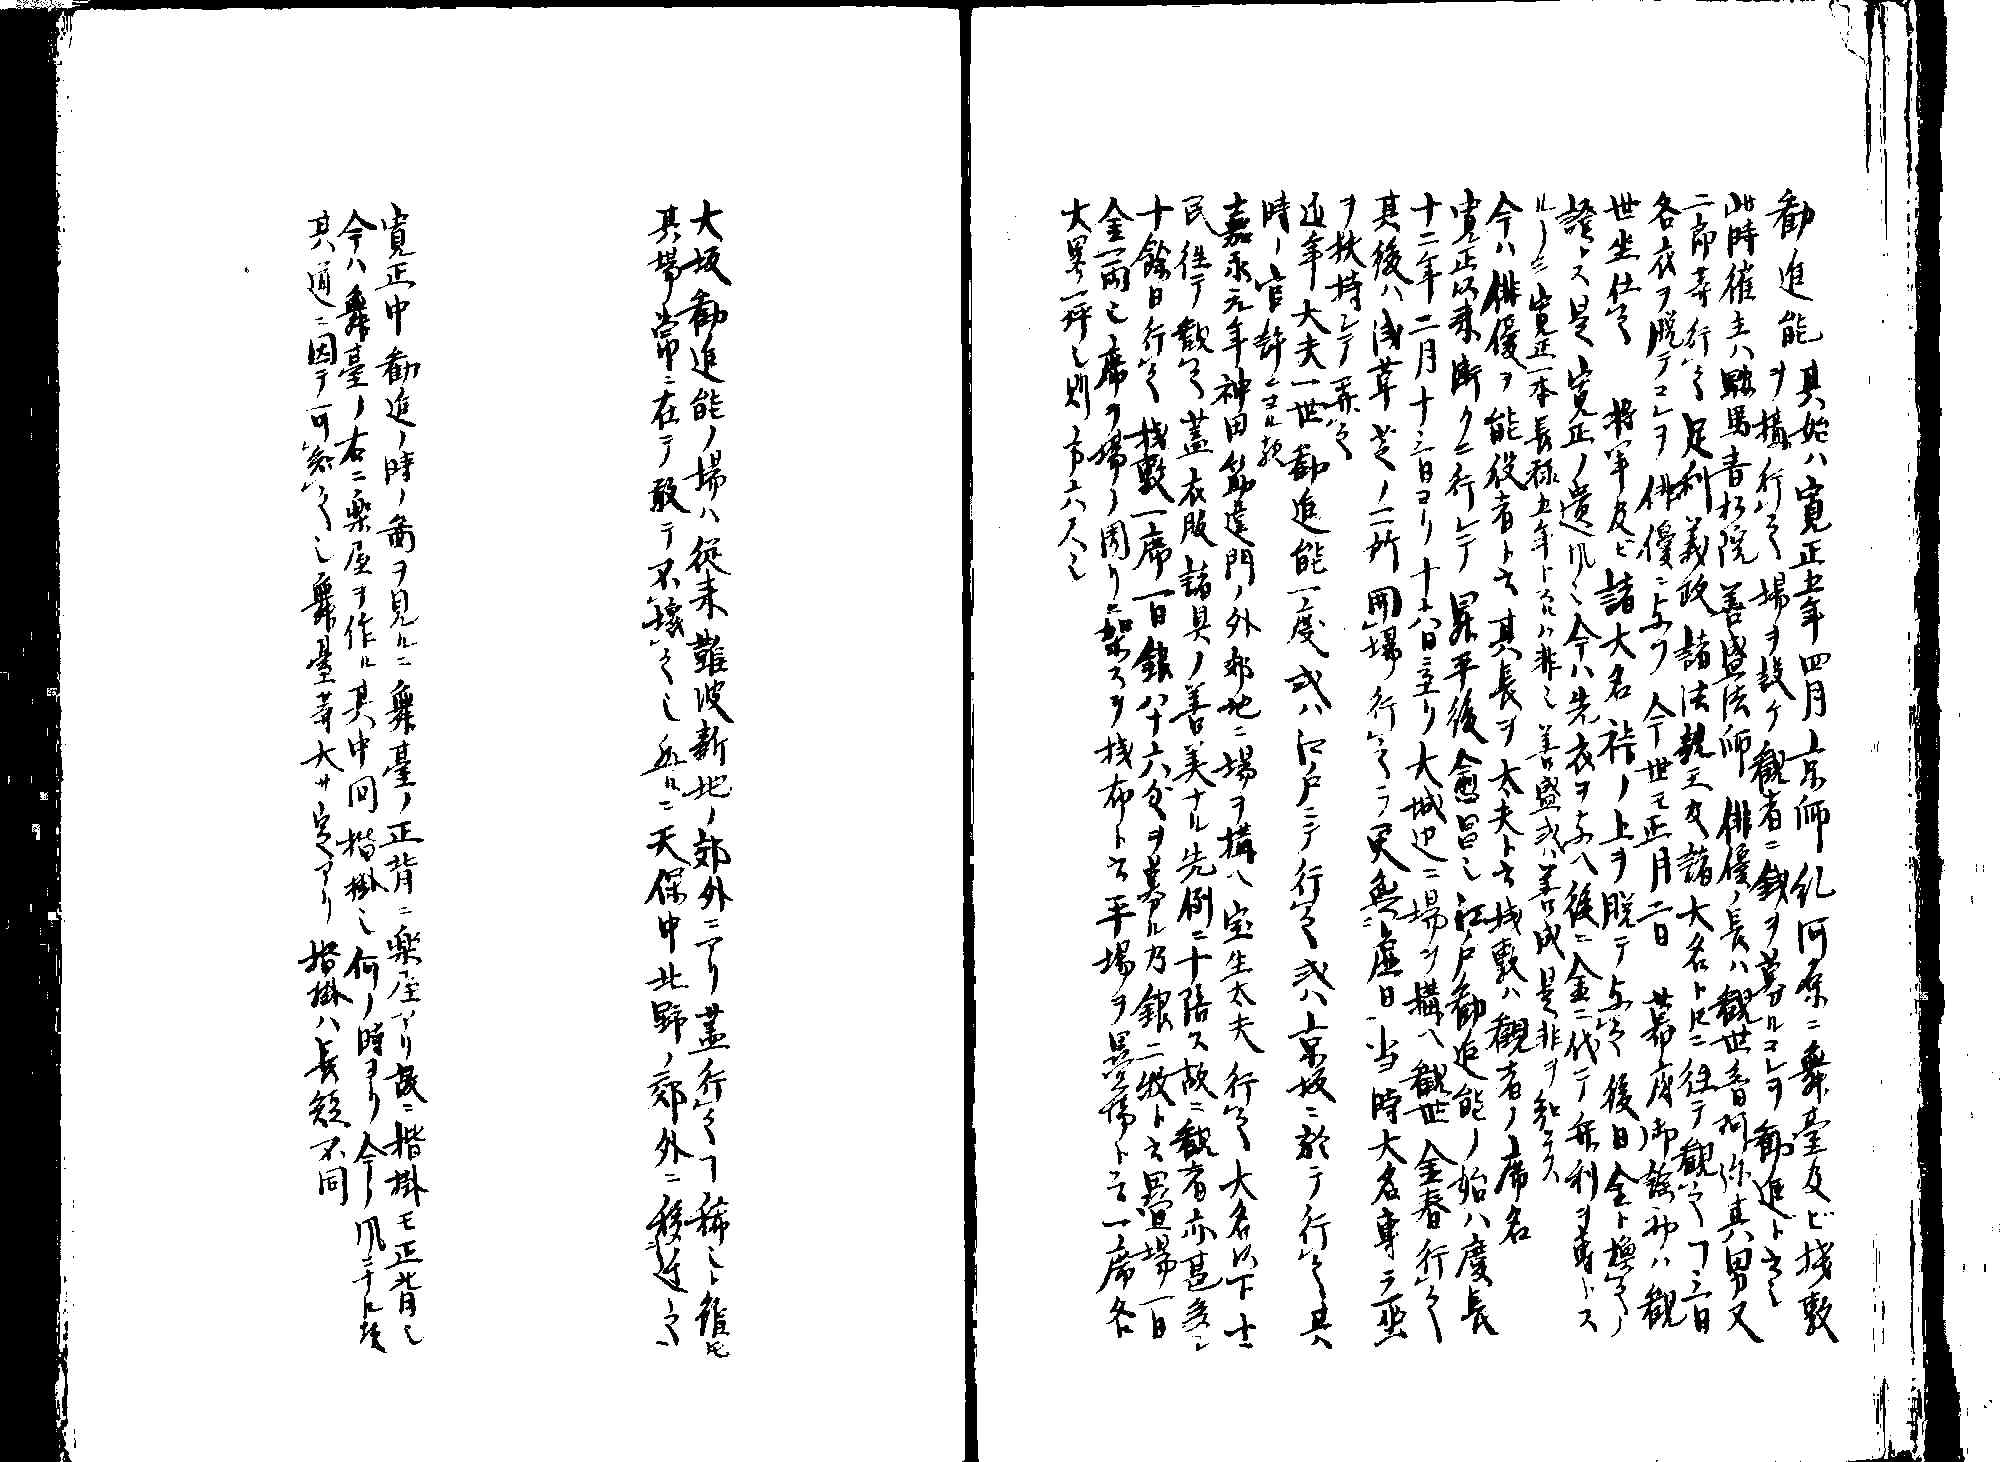 勧進能 其始ハ寛正五年四月京師糺河原ニ舞臺及ビ桟敷
ヲ構ヘ行之 場ヲ設ケ観者ニ銭ヲ募ルコレヲ勧進ト云也
此時催主ハ鞍馬青松院善盛法師 俳優ノ長ハ観世音阿弥其男又
二郎等行之 足利義政諸法親王及諸大名ト尼ニ往テ観之コト三日
各衣ヲ脱テコレヲ俳優ニ与フ 今世モ正月二日 幕府御謡初ハ観
世坐仕之 将軍及ビ諸大名裃ノ上ヲ脱テ与之 後日金ト換之ノ
證トス是寛正ノ遺風也 今ハ先衣ヲ与ヘ後ニ金ニ代テ無利ヲ専トス
ル也 寛正一本長禄五年トスルハ非也 善盛或ハ善成是非ヲ知ラス
今ハ俳優ヲ能役者ト云 其長ヲ太夫ト云 桟敷ハ観者ノ席名
寛正以来断タニ行レテ昇平後愈昌也 江戸勧進能ノ始ハ慶長
十二年二月十三日ヨリ十六日ニ至リ大城辺ニ場ヲ構ヘ観世金春行之
其後ハ浅草芝ノ二所開場行之テ更無虚日 当時大名専ラ巫
ヲ扶持シテ弄之
近年大夫一世勧進能一度或ハ江戸ニテ行之 或ハ京坂ニ於テ行之 其
時ノ官許ニヨル歟
嘉永元年神田筋違門ノ外郊地ニ場ヲ構ヘ宝生太夫行之 大名以下士
民往テ観之 蓋衣服諸具ノ善美ナル先例ニ十陪ス故ニ観者亦甚多シ
十餘日行之 桟敷一席一日銀八十六匁ヲ募ル乃銀二枚ト云 畳場一日
金一両也 席ヲ場ノ周リニ架スヲ桟布ト云 平場ヲ畳席ト云 一席各
大畧一坪也 則方六尺也
大坂勧進能ノ場ハ従来難波新地ノ郊外ニアリ 蓋行之コト稀也ト雖モ
其場常ニ在テ敢テ不壊之也 然ルニ天保中北野ノ郊外ニ移シ造之
寛正中勧進ノ時ノ畵ヲ見ルニ舞臺ノ正背ニ楽屋アリ 故ニ楷掛モ正背也
今ハ舞臺ノ右ニ楽屋ヲ作ル 其中間楷掛也 何ノ時ヨリ今ノ風ニナル歟
其道ニ因テ可知之也 舞臺等大サ定アリ 楷掛ハ長短不同